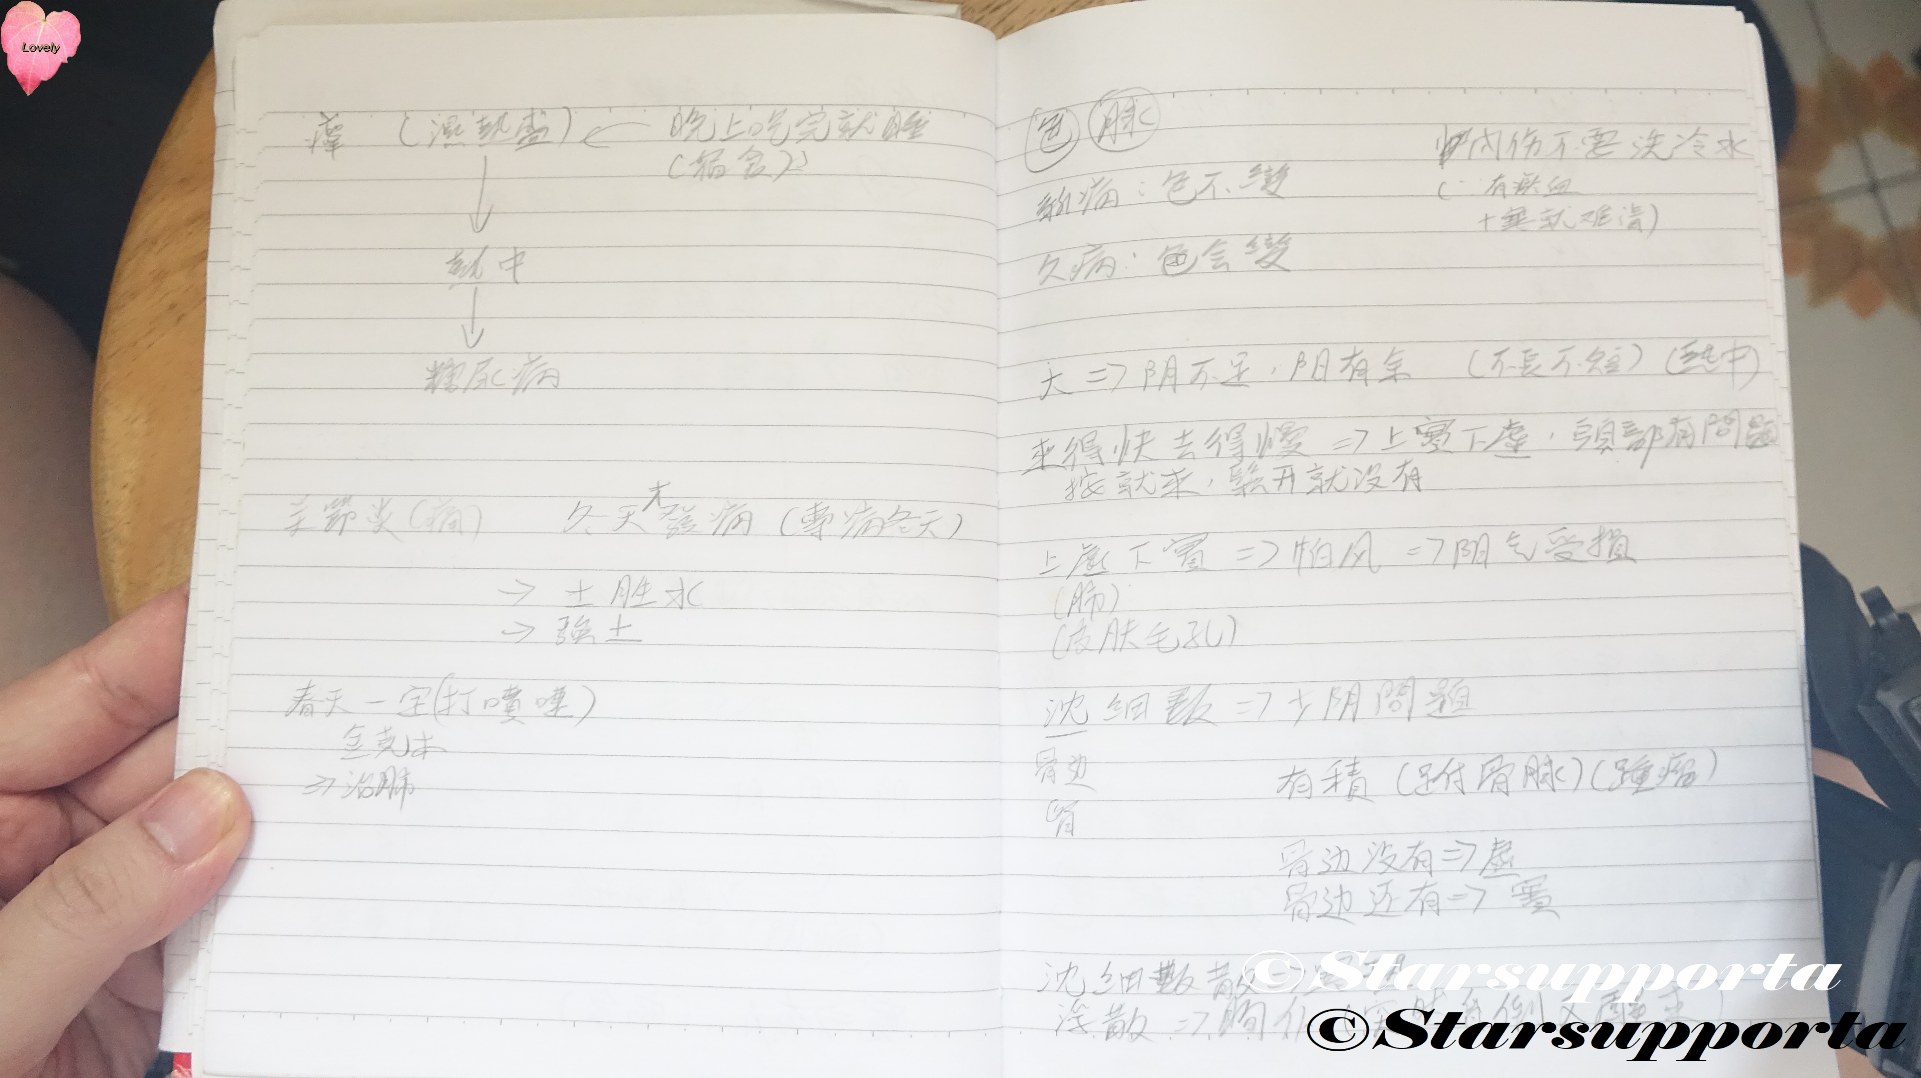 Lovely
瘅 (濕熱盛) ← 晚上吃完就睡
(宿食)
熱中
糖尿病
关節炎(痛) 冬天不發病 (專病冬天)
→ 土胜水
→ 強土
春天一定(打噴嚏)
金克木
⇒ 治肺
色 脉
内伤不要洗冷水
(∵ 有瘀血
+寒就难清)
新病：色不變
久病：色会變
大 ⇒ 阴不足，阳有余 (不長不短) (熱中)
來得快去得慢 ⇒ 上實下虛，頭部有問題
按就來，鬆开就没有
上虛下實 ⇒ 怕风 ⇒ 阳气受損
(肺)
(皮肤毛孔)
沈細數 ⇒ 少阴問題
骨边
腎
有積 (附骨脉) (腫瘤)
骨边没有 ⇒ 虛
骨边还有 ⇒ 實
沈細數散
浮散 ⇒
©Starsupporta
©Starsupporta